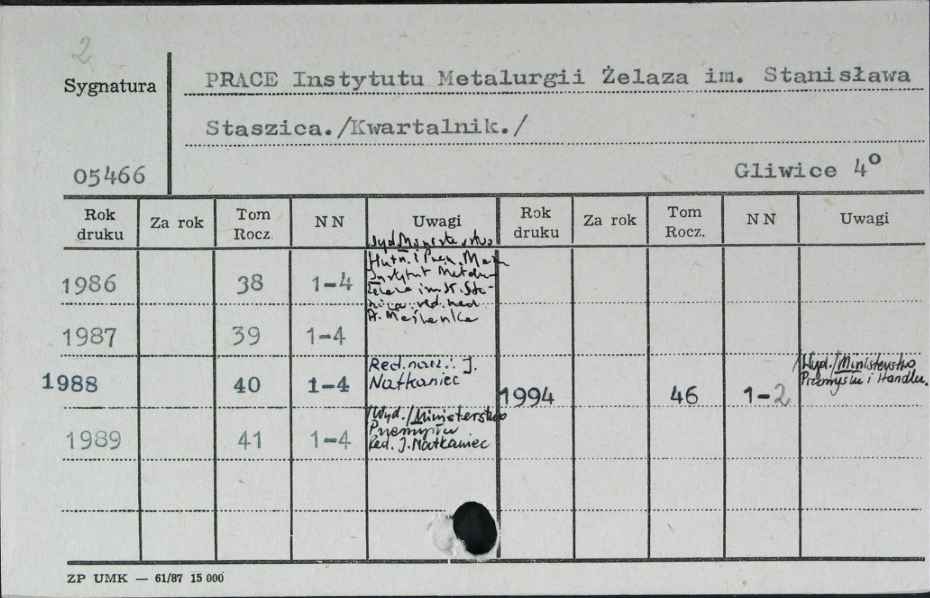 2
Sygnatura
PRACE Instytutu Metalurgii Żelaza im. Stanisława
Staszica./Kwartalnik./
05466
Gliwice 4°
Rok druku Za rok Tom Rocz. NN Uwagi Rok druku Za rok Tom Rocz. NN Uwagi
Wyd. Ministerstwo
Hutn. i Prze. Masz
Instytut Metalur
Żelaza im. St. Sta-
szica. red. nacz
A. Maślanka
1986 38 1-4
1987 39 1-4
Red. nacz.: J.
Natkaniec
1988 40 1-4
1994 46 1-2
/Wyd./Ministerstwo
Przemysłu i Handlu.
/Wyd./Ministerstwo
Przemysłu
Red. J. Natkaniec
1989 41 1-4
ZP UMK — 61/87 15 000